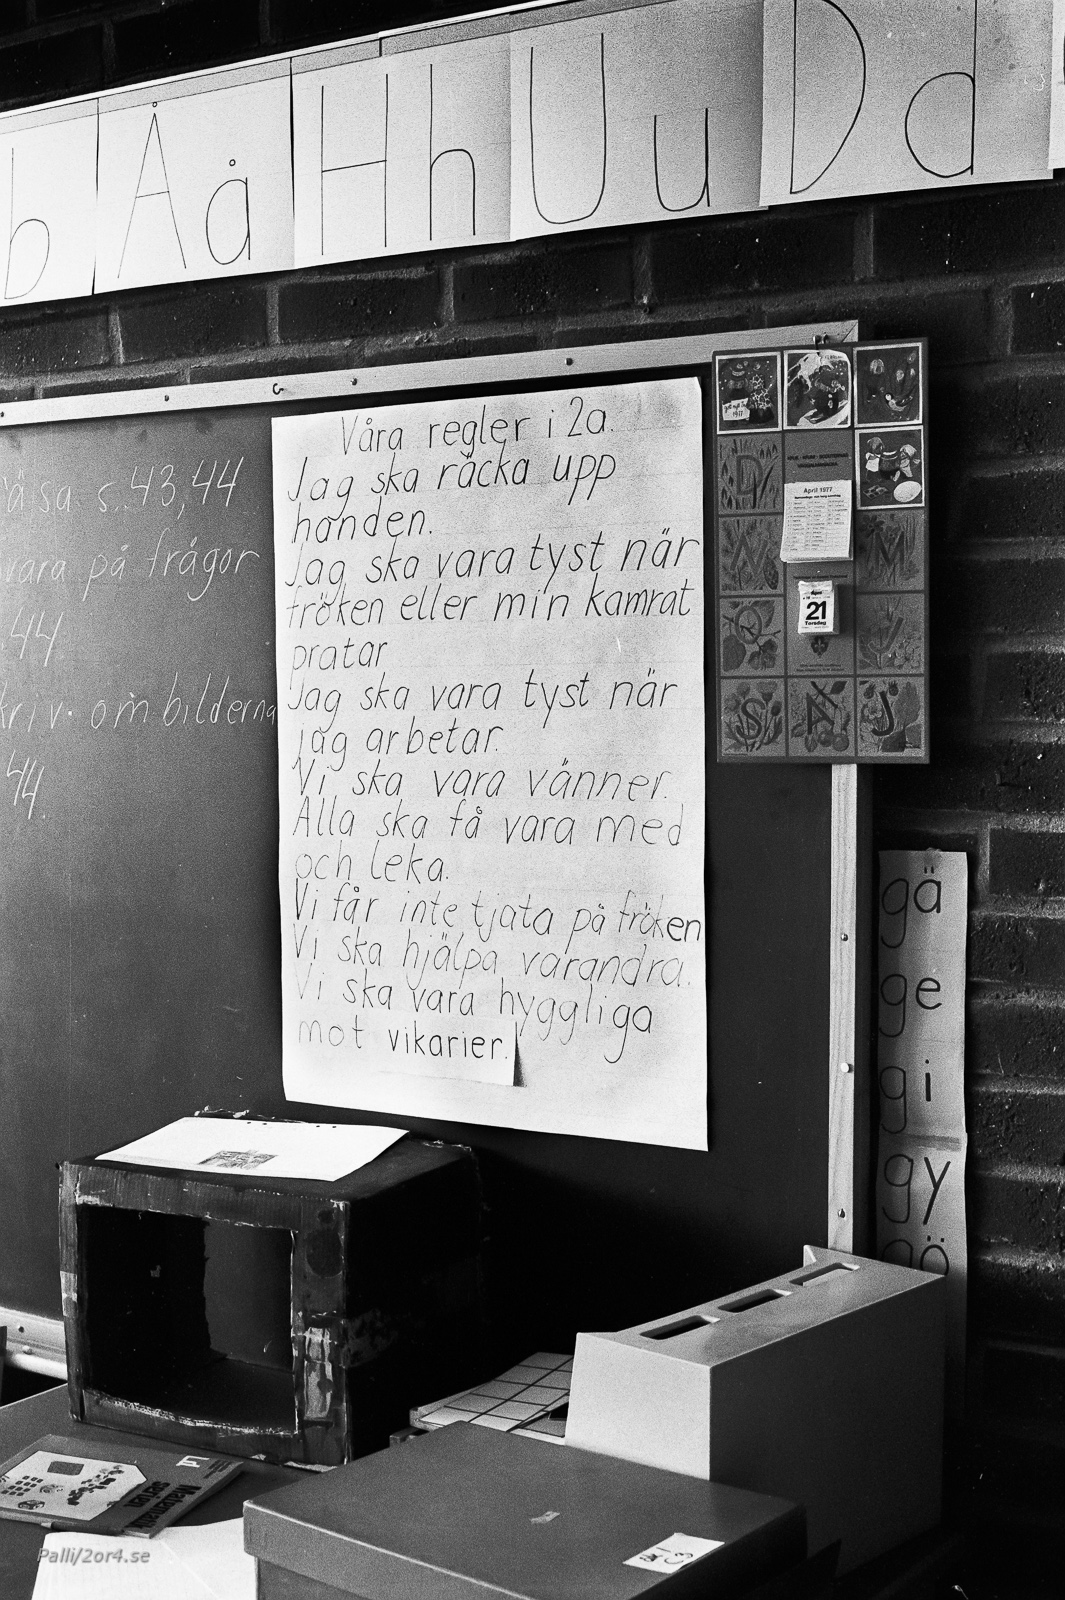 b Åå Hh Uu Dd
Våra regler i 2a.
Jag ska räcka upp
handen.
Jag ska vara tyst när
fröken eller min kamrat
pratar
Jag ska vara tyst när
jag arbetar.
Vi ska vara vänner.
Alla ska få vara med
och leka.
Vi får inte tjata på fröken
Vi ska hjälpa varandra.
Vi ska vara hyggliga
mot vikarier.
s 43,44
vara på frågor
44
kriv om bilderna
44.
April 1977
21
Torsdag
S A J
gä
ge
gi
gy
gö
Matematik
Palli/2or4.se